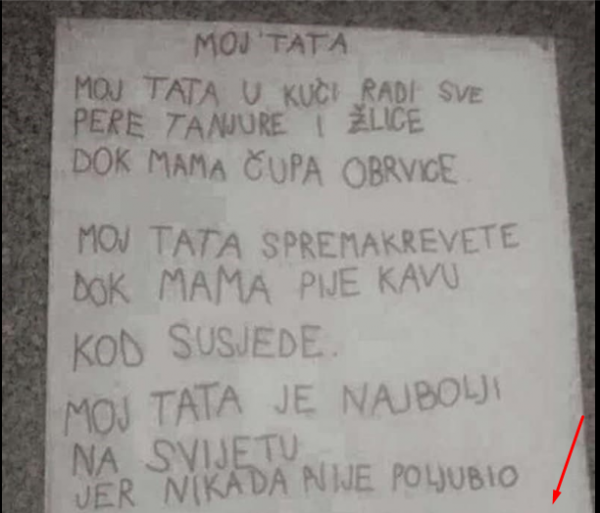 MOJ TATA
MOJ TATA U KUČI RADI SVE
PERE TANJURE I ŽLICE
DOK MAMA ČUPA OBRVICE
MOJ TATA SPREMAKREVETE
DOK MAMA PIJE KAVU
KOD SUSJEDE.
MOJ TATA JE NAJBOLJI
NA SVIJETU
JER NIKADA NIJE POLJUBIO